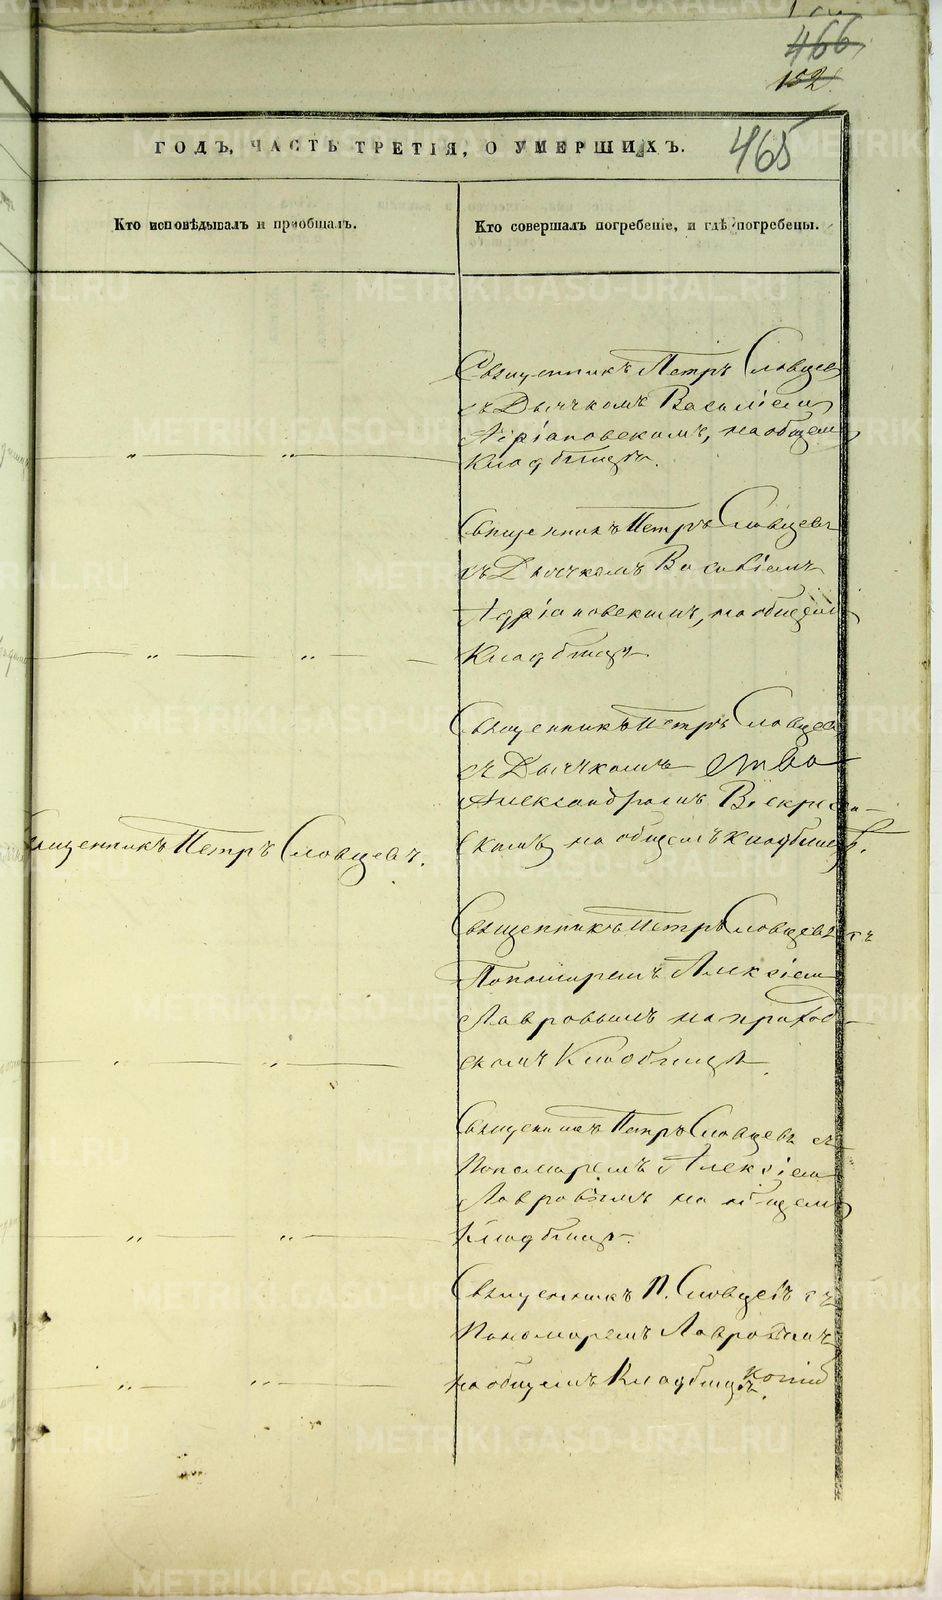 466
152.
ГОДЪ, ЧАСТЬ ТРЕТІЯ, О УМЕРШИХЪ.
465
Кто исповѣдывалъ и пріобщалъ.
Кто совершалъ погребеніе, и гдѣ погребены.
Священникъ Петръ Словцев
съ Дьячкомъ Василіемъ
Адріановскомъ, на общем
Кладбищѣ.
Священникъ Петръ Словцевъ
съ Дьячкомъ Василіемъ
Адріановскимъ, на общем
Кладбищѣ
Священникъ Петръ Словцев
съ Дьячкомъ
Александромъ Воскресен-
скимъ на общемъ кладбищѣ.
Священникъ Петръ Словцевъ.
Священникъ Петръ Словцевъ съ
Пономаремъ Алексіем
Лавровымъ на приход-
скомъ Кладбищѣ.
Священникъ Петръ Словцевъ съ
Пономаремъ Алексіем
Лавровымъ на общемъ
Кладбищѣ.
Священникъ П. Словцевъ съ
Пономаремъ Лавровымъ
на общемъ Кладбищѣ.
METRIKI.GASO-URAL.RU